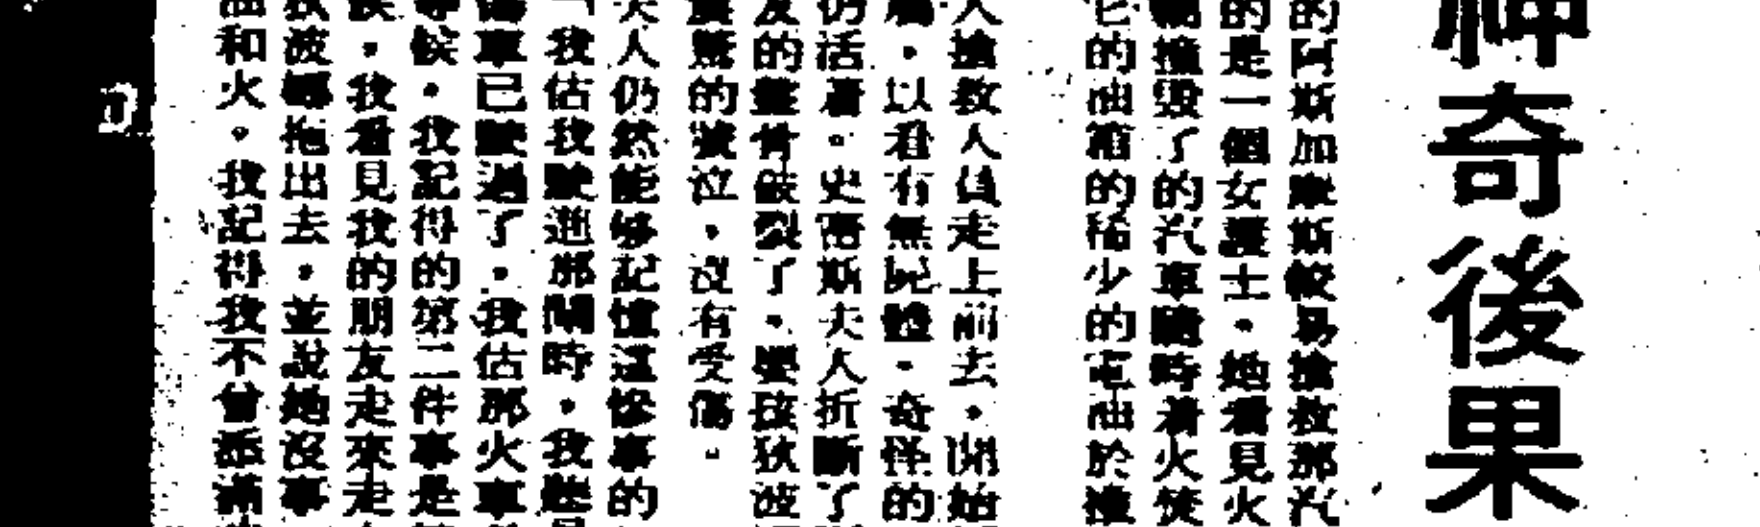 神奇後果
的阿斯加摩斯較易搶救那汽
的是一個女護士。她看見火
輛撞毀了的汽車隨時着火焚
它的油箱的稀少的電油於撞
人搶救人員走上前去，開始
屬，以看有無屍體。奇怪的
仍活着。史密斯夫人折斷了
及的盤骨破裂了。嬰孩狄波
震驚的號泣，沒有受傷。
夫人仍然能够記憶這慘事的
「我估我駛進那閘時，我聽
輛車已駛過了，我估那火車
等候。我記得的第二件事是
候，我看見我的朋友走來走
狄波娜拖出去，並說她沒事
油和火。我記得我不曾添滿